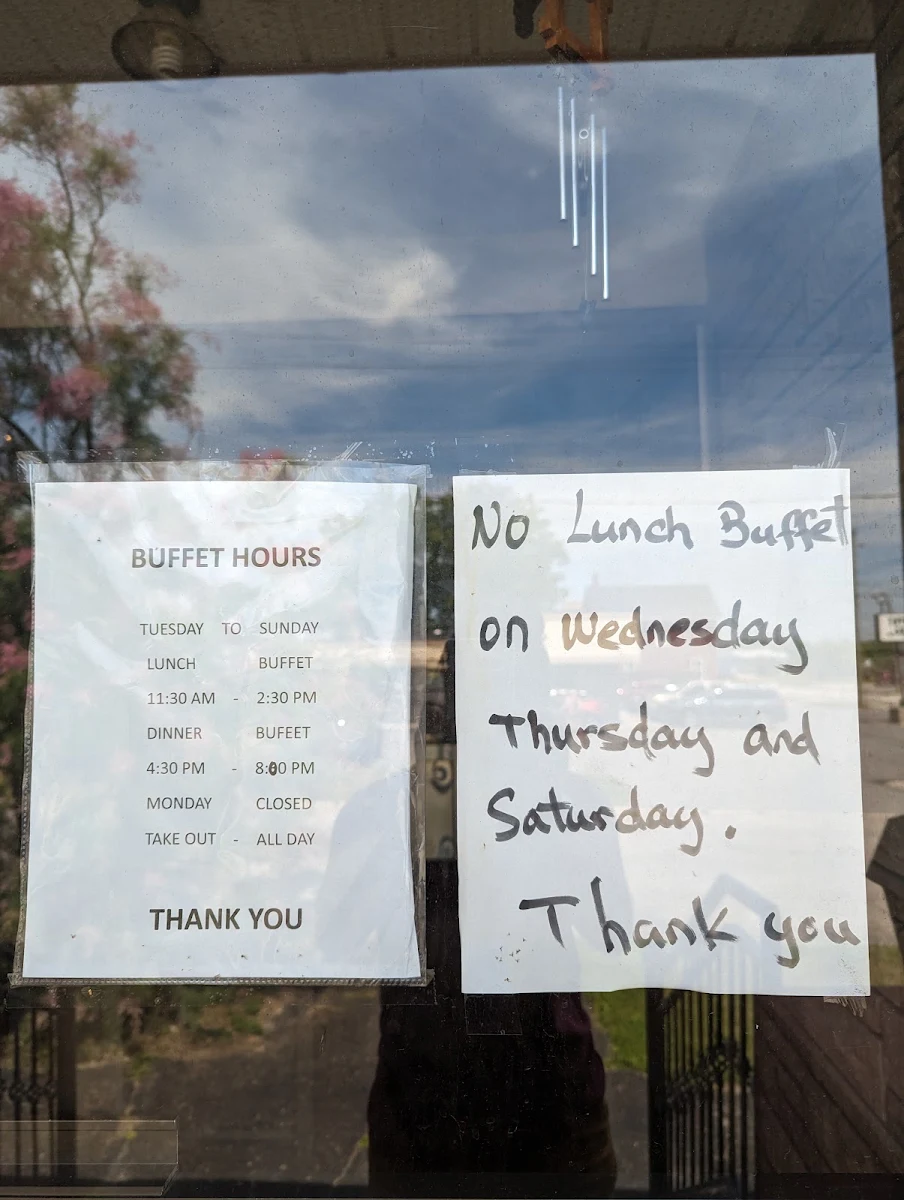 BUFFET HOURS
TUESDAY TO SUNDAY
LUNCH BUFFET
11:30 AM - 2:30 PM
DINNER BUFEET
4:30 PM - 8:00 PM
MONDAY CLOSED
TAKE OUT - ALL DAY
THANK YOU
No Lunch Buffet
on Wednesday
Thursday and
Saturday.
Thank you